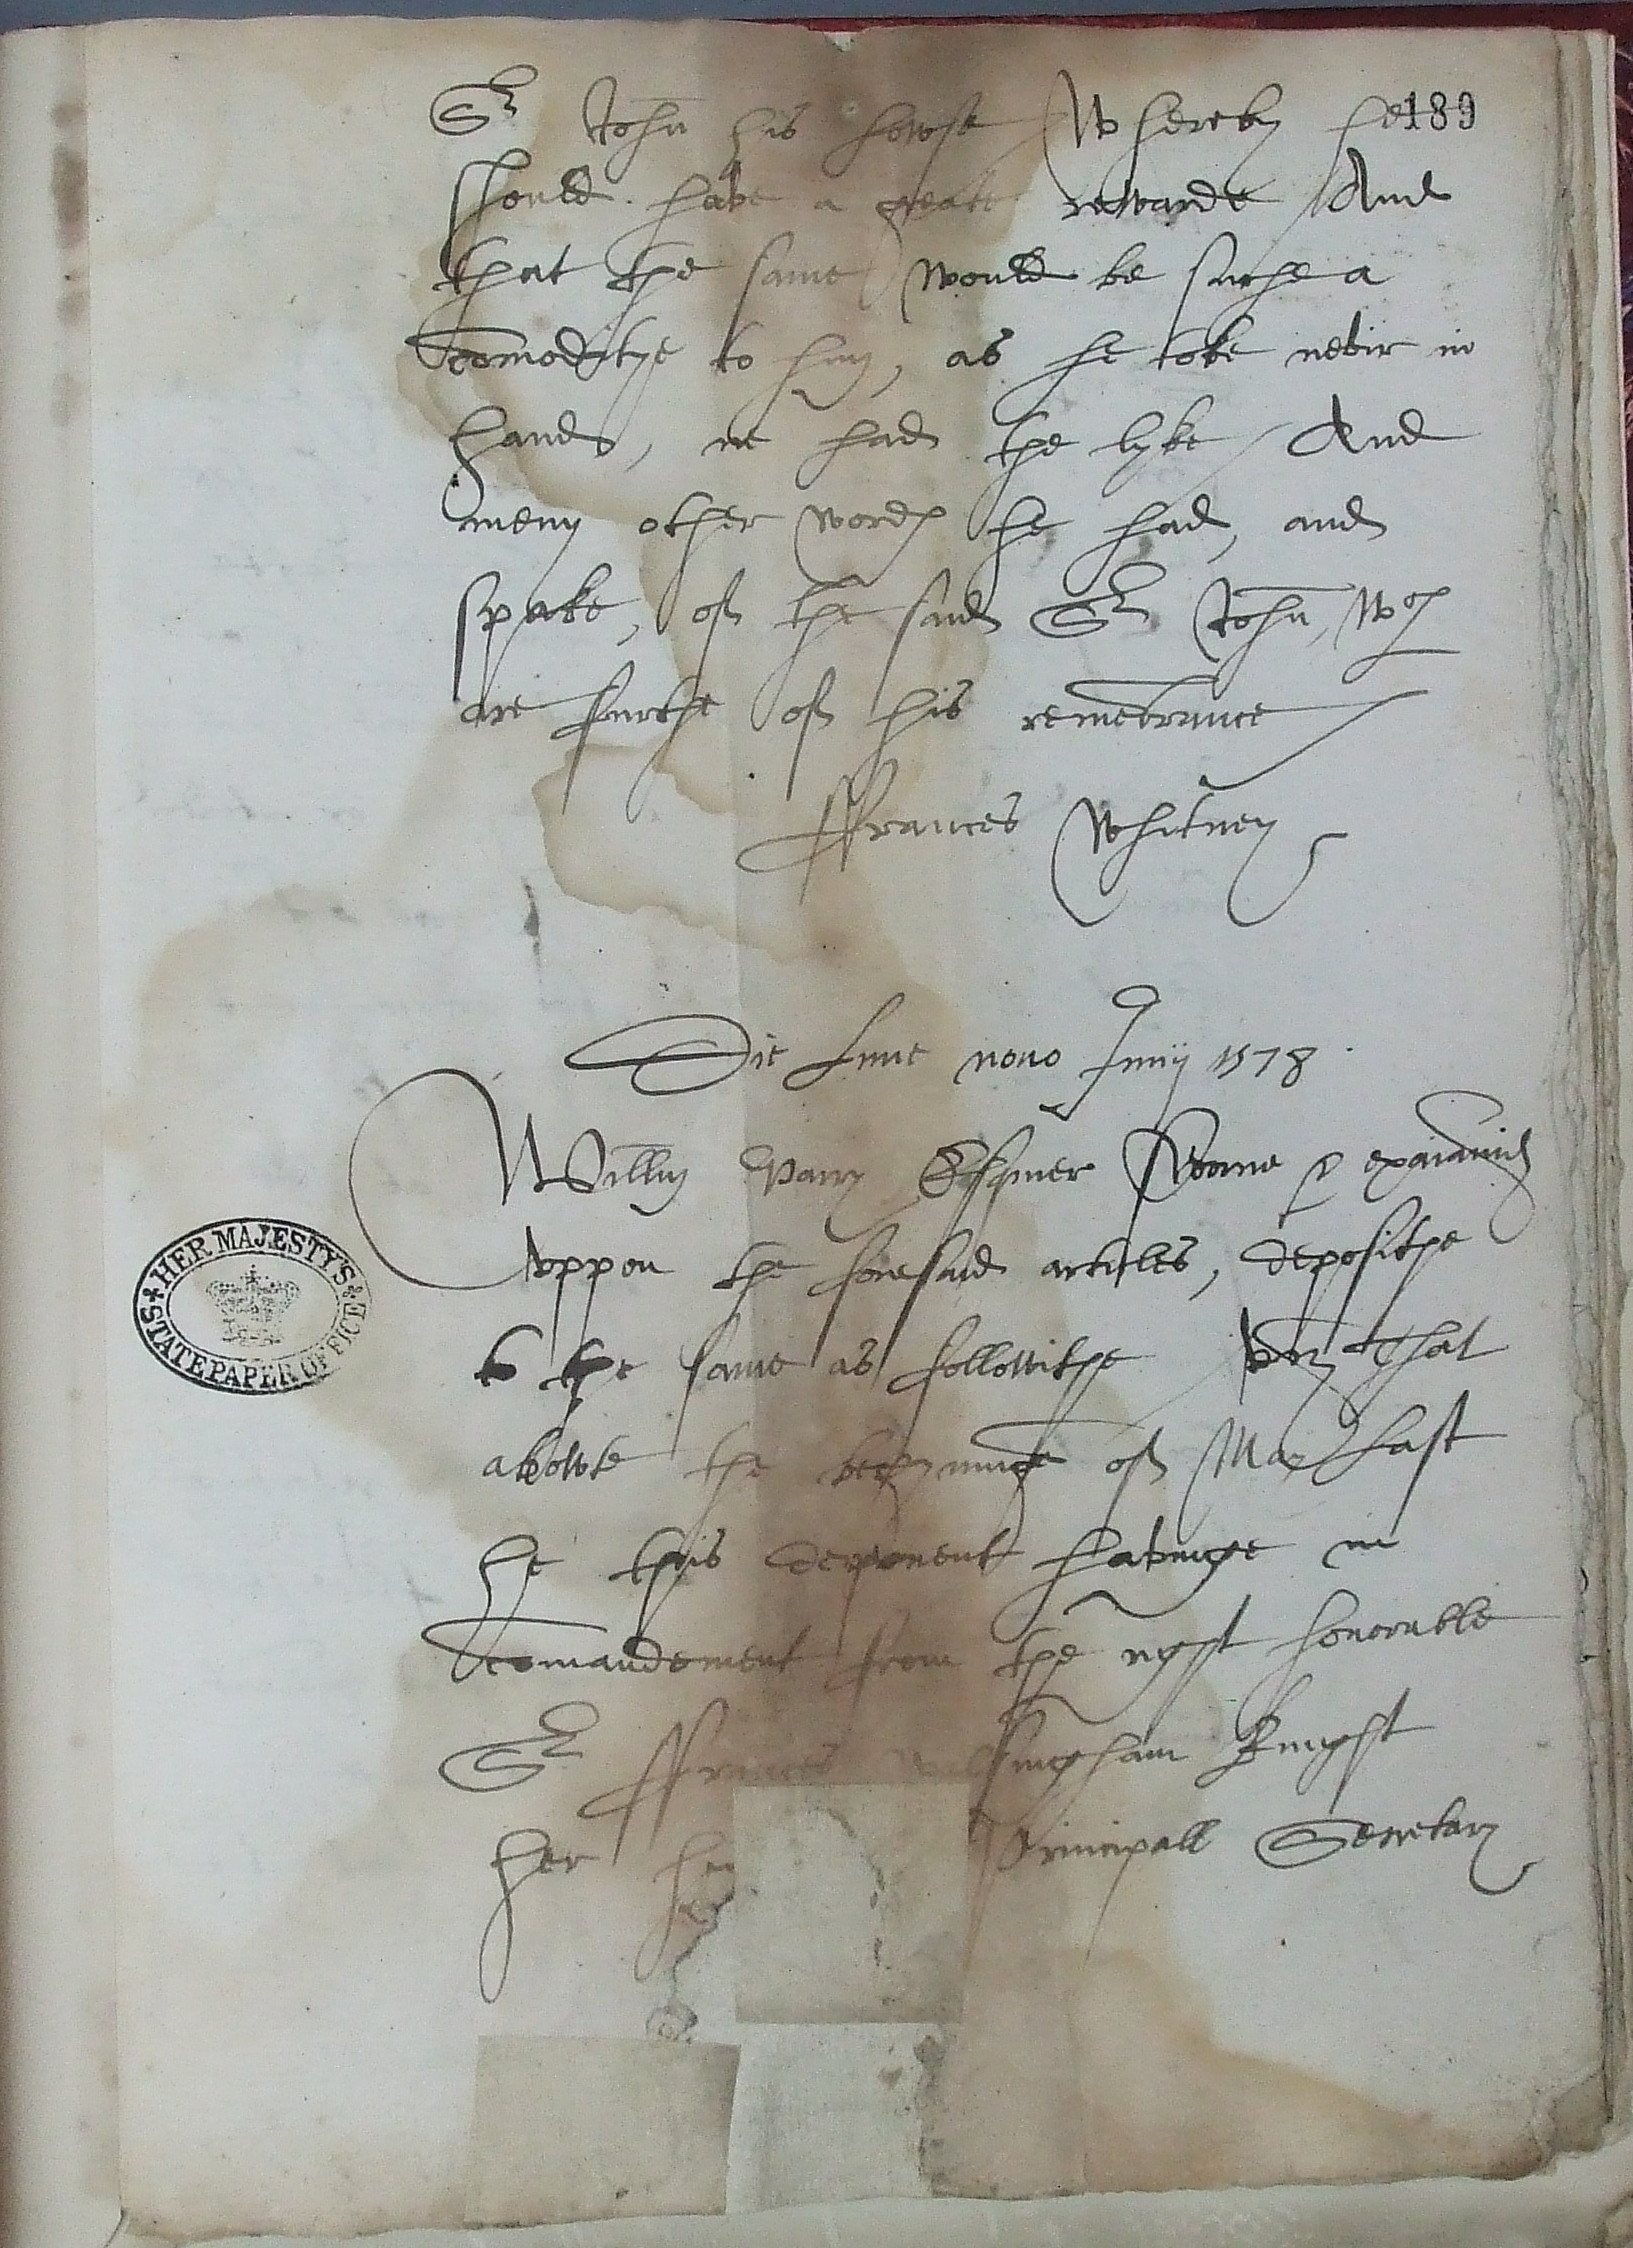 Sr John his howse / Whereby he 189
should have a greate rewarde / And
that the same would be suche a
comoditye to hym, as he toke nevir in
hand, ne had the lyke / And
meny other words he had, and
spake, of the said Sr John, wch
are furthe of his remebrance /
Ffrances Whitney
Die Lune nono Junij 1578.
Willm Parry Esquier sworne &
uppon the foresaid articles, deposithe
to the same as followithe / vz That
abowte the begynninge of May Last
he this deponent havinge in
comaundement from the ryght honorable
Sr Ffrances Walsingham Knyght
her Principall Secretary
HER MAJESTY'S
STATE PAPER OFFICE